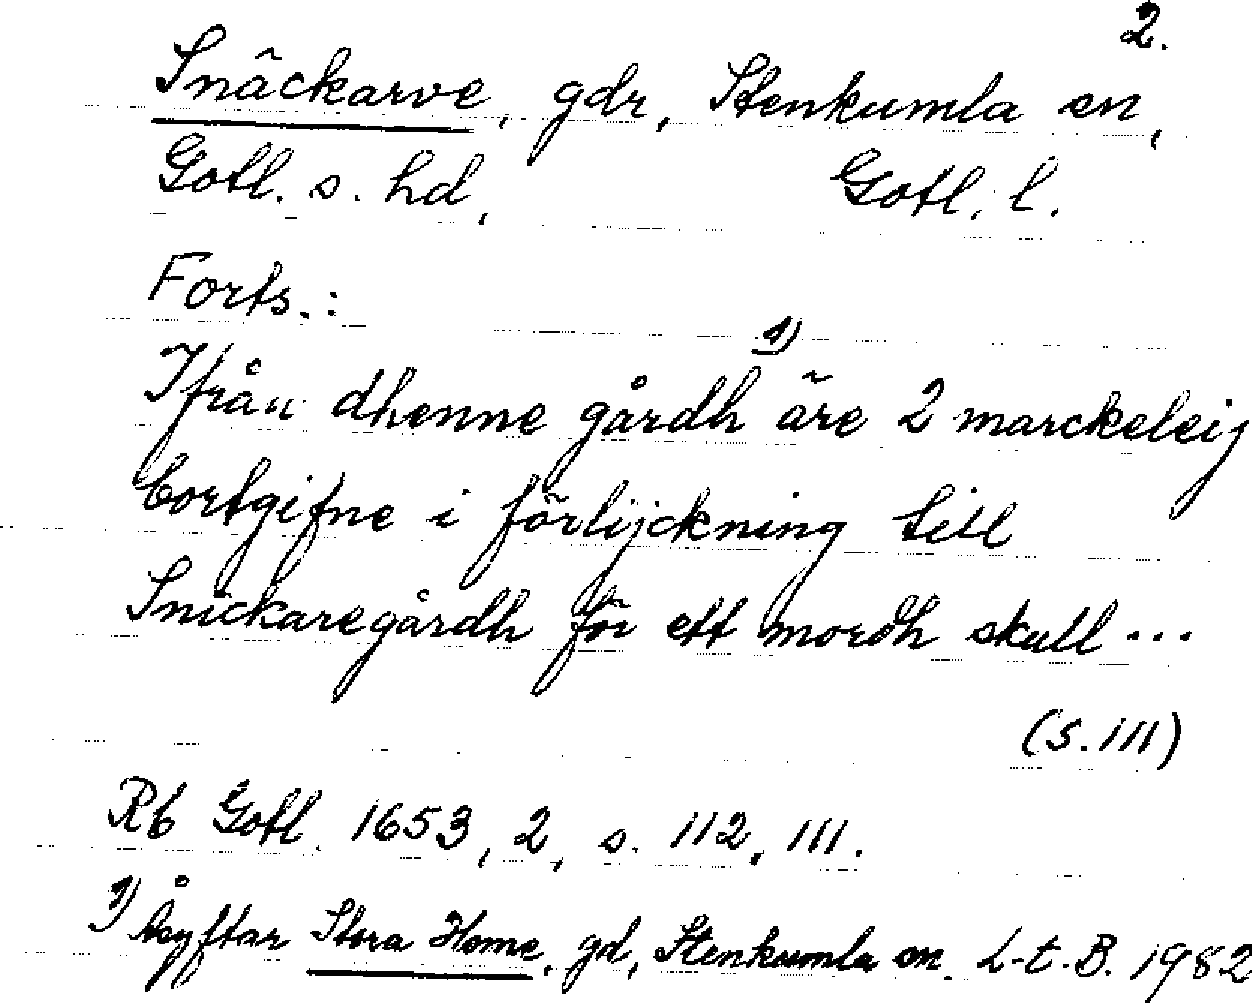 2.
Snäckarve, gdr, Stenkumla sn,
Gotl. s. hd, Gotl. l.
Forts.:
1)
Ifrån dhenne gårdh äre 2 marckeleij
bortgifne i förlijckning till
Snickaregårdh för ett mordh skull...
(s. 111)
Rb Gotl. 1653, 2, s. 112, 111.
1) Åsyftar Stora Home, gd, Stenkumla sn. L-t. B. 1982